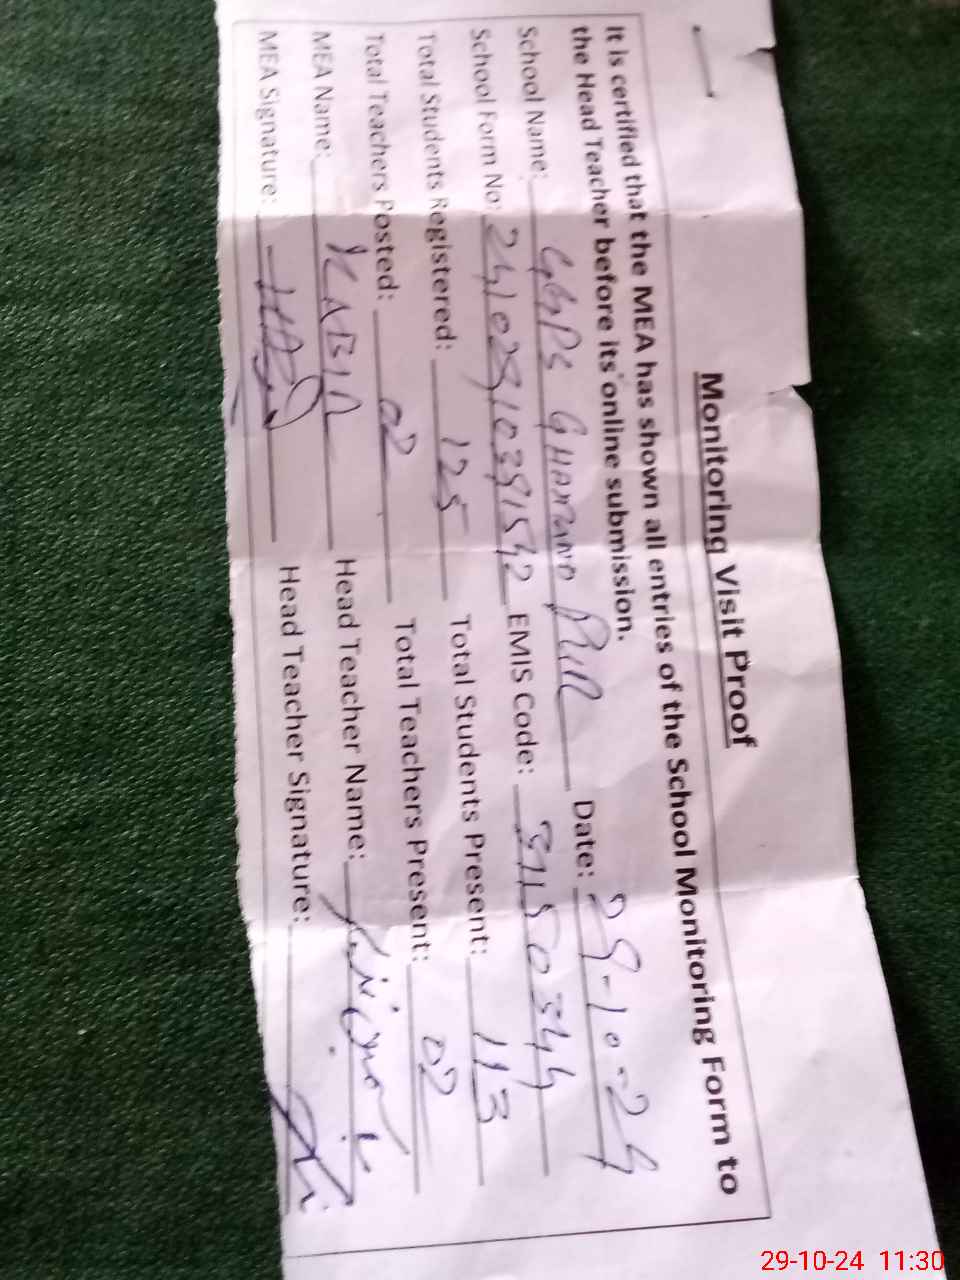 Monitoring Visit Proof
It is certified that the MEA has shown all entries of the School Monitoring Form to
the Head Teacher before its online submission.
School Name: GGPS GHAMAND PUR Date: 29-10-24
School Form No: 24102910391542 EMIS Code: 31150344
Total Students Registered: 125 Total Students Present: 113
Total Teachers Posted: 02 Total Teachers Present: 02
MEA Name: KABIR Head Teacher Name:
MEA Signature: Head Teacher Signature:
29-10-24 11:30